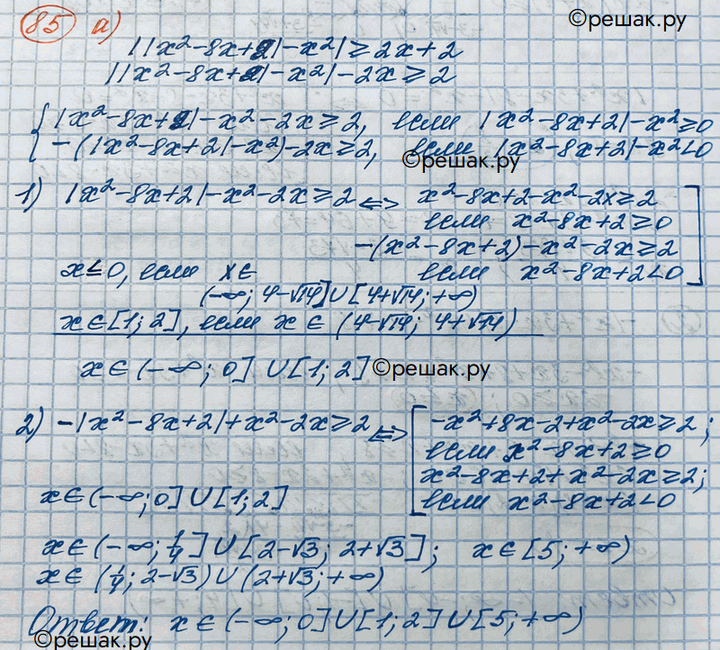 ©решак.ру
85 а)
||x²-8x+2|-x²|≥2x+2
||x²-8x+2|-x²|-2x≥2
{|x²-8x+2|-x²-2x≥2, если |x²-8x+2|-x²≥0
-(|x²-8x+2|-x²)-2x≥2, если |x²-8x+2|-x²<0
©решак.ру
1) |x²-8x+2|-x²-2x≥2 <=> x²-8x+2-x²-2x≥2
если x²-8x+2≥0
-(x²-8x+2)-x²-2x≥2
x≤0, если x∈ если x²-8x+2<0]
(-∞; 4-√14]∪[4+√14; +∞)
x∈[1; 2], если x∈(4-√14; 4+√14)
x∈(-∞; 0]∪[1; 2] ©решак.ру
2) -|x²-8x+2|+x²-2x≥2 <=> [-x²+8x-2+x²-2x≥2;
если x²-8x+2≥0
x²-8x+2+x²-2x≥2;
x∈(-∞; 0]∪[1; 2] если x²-8x+2<0
x∈(-∞; 1/4]∪[2-√3; 2+√3]; x∈[5; +∞)
x∈(1/4; 2-√3)∪(2+√3; +∞)
Ответ: x∈(-∞; 0]∪[1; 2]∪[5; +∞)
©решак.ру